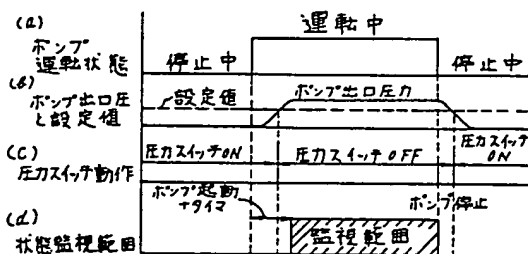 (a)
ポンプ
運転状態
停止中
運転中
停止中
(b)
ポンプ出口圧
と設定値
設定値
ポンプ出口圧力
(c)
圧力スイッチ動作
圧力スイッチON
圧力スイッチOFF
圧力スイッチ
ON
ポンプ起動
+タイマ
ポンプ停止
(d)
状態監視範囲
監視範囲